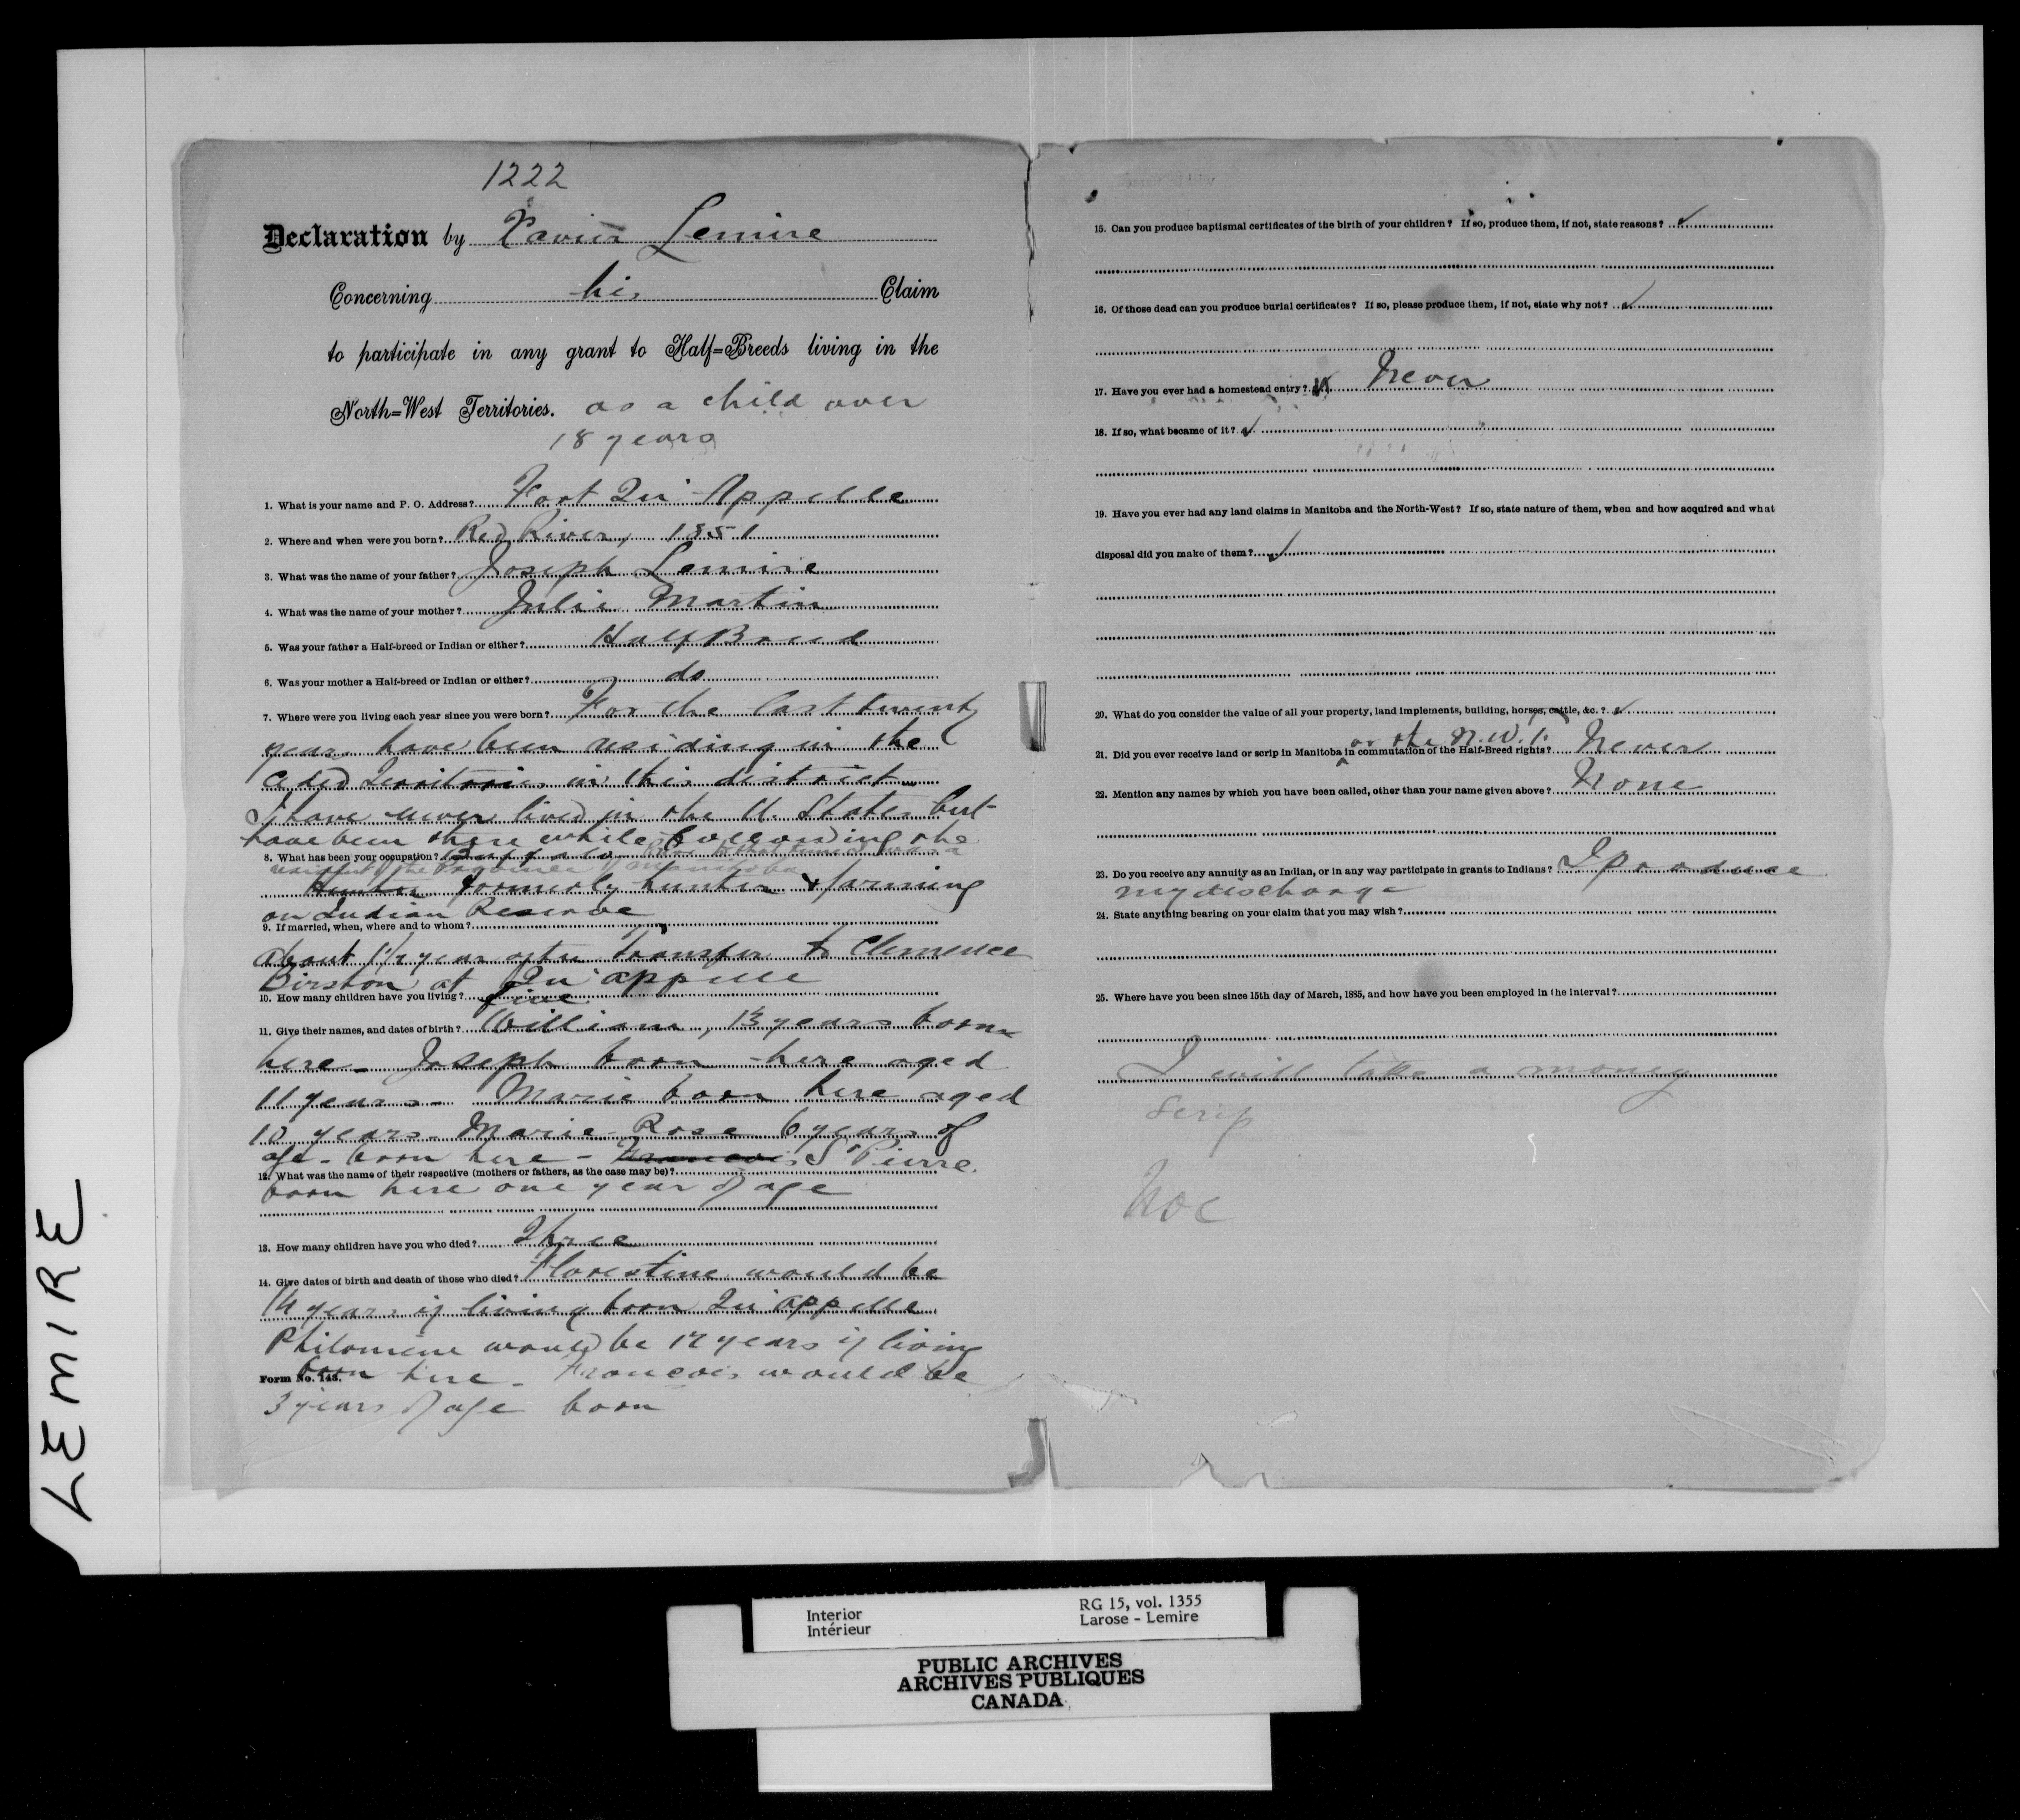 1222
Declaration by Xavier Lemire
Concerning his Claim
to participate in any grant to Half=Breeds living in the
North=West Territories. as a child over
18 years
1. What is your name and P. O. Address? Fort Qu'Appelle
2. Where and when were you born? Red River, 1851
3. What was the name of your father? Joseph Lemire
4. What was the name of your mother? Julie Martin
5. Was your father a Half-breed or Indian or either? Half Breed
6. Was your mother a Half-breed or Indian or either? do
7. Where were you living each year since you were born? For the last twenty
years have been residing in the
ceded Territories in this district
I have never lived in the U. States but
have been there while following the
8. What has been your occupation? Buffalo Prior to that time I was a
resident of the Province of Manitoba
Hunter formerly hunter & farming
on Indian Reserve
9. If married, when, where and to whom?
about 1½ year after Transfer to Clemence
Birston at Qu'appelle
10. How many children have you living? five
11. Give their names, and dates of birth? William, 13 years born
here - Joseph born here aged
11 years - Marie born here aged
10 years - Marie Rose 6 years of
age - born here - Francois St Pierre
12. What was the name of their respective (mothers or fathers, as the case may be)?
born here one year of age
13. How many children have you who died? Three
14. Give dates of birth and death of those who died? Florestine would be
14 years if living born Qu'appelle
Philomene would be 12 years if living
Form No. 143. born here - Francois would be
3 years of age born
15. Can you produce baptismal certificates of the birth of your children? If so, produce them, if not, state reasons? ✓
16. Of those dead can you produce burial certificates? If so, please produce them, if not, state why not? ✓
17. Have you ever had a homestead entry? Never
18. If so, what became of it? ✓
19. Have you ever had any land claims in Manitoba and the North-West? If so, state nature of them, when and how acquired and what
disposal did you make of them? ✓
20. What do you consider the value of all your property, land implements, building, horses, cattle, &c. ? ✓
or the N.W.T.
21. Did you ever receive land or scrip in Manitoba in commutation of the Half-Breed rights? Never
22. Mention any names by which you have been called, other than your name given above? None
23. Do you receive any annuity as an Indian, or in any way participate in grants to Indians? I produce
my discharge
24. State anything bearing on your claim that you may wish?
25. Where have you been since 15th day of March, 1885, and how have you been employed in the interval?
I will take a money
scrip
LEMIRE
Interior
Intérieur
RG 15, vol. 1355
Larose - Lemire
PUBLIC ARCHIVES
ARCHIVES PUBLIQUES
CANADA